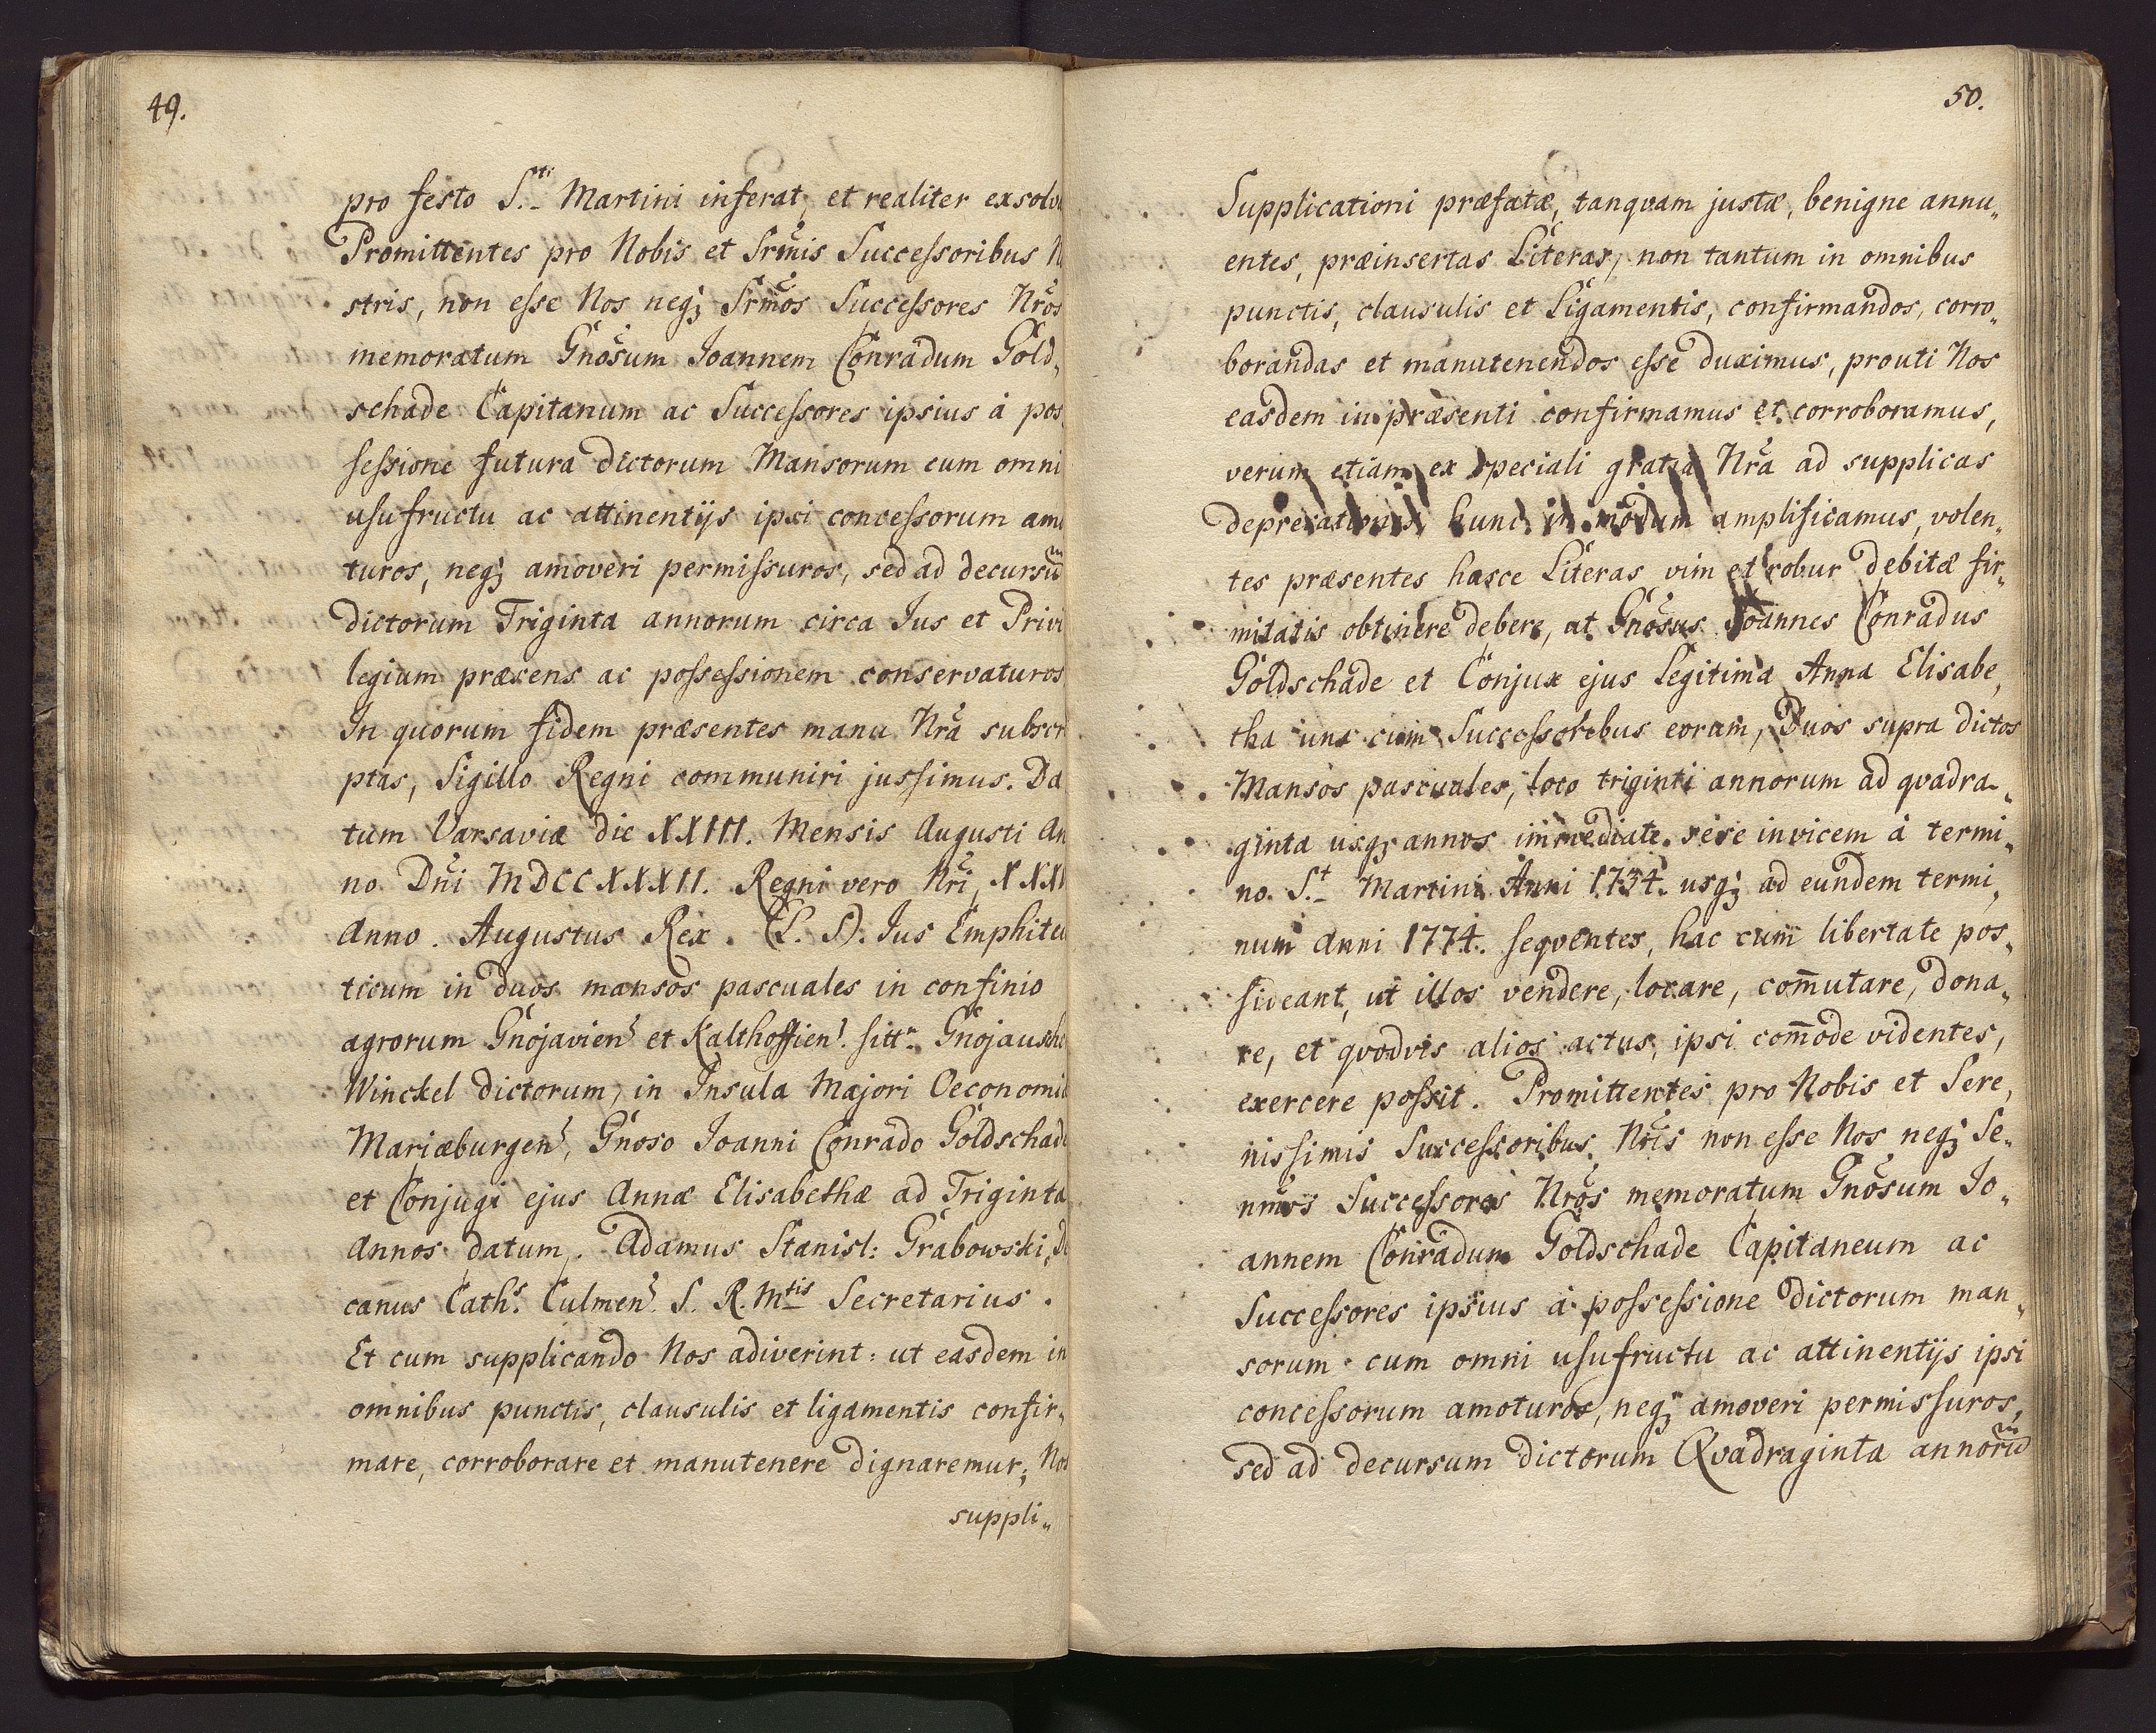 49.
pro festo S.ti Martini inferat, et realiter exsolv
Promittentes pro Nobis et Srm̃is Successoribus N
stris, non esse Nos neq; Srm̃os Successores Nr̃os
memoratum Gnõsum Joannem Conradum Gold„
schade Capitanum ac Successores ipsius à pos
sessione futura dictorum Mansorum cum omni
usufructu ac attinentijs ipsi concessorum amo
turos, neq; amoveri permissuros, sed ad decursũ
dictorum Triginta annorum circa Jus et Privi
legium præsens ac possessionem conservaturos
In quorum fidem præsentes manu Nr̃a subscri
ptas, Sigillo Regni communiri jussimus. Da
tum Varsaviæ die XXIII. Mensis Augusti An
no Dñi MDCCXXXII. Regni vero Nr̃i, XXXVI
Anno. Augustus Rex. (L. S). Jus Emphiteu
ticum in duos mansos pascuales in confinio
agrorum Gnojavien? et Kalthoffien? sitt:r Gnojausche
Winckel dictorum, in Insula Majori Oeconomiæ
Mariæburgen?, Gnoso Joanni Conrado Goldschade
et Conjugi ejus Annæ Elisabethæ ad Triginta
Annos datum. Adamus Stanisl: Grabowski, De
canus Cath?. Culmen?. S. R. Mtis Secretarius.
Et cum supplicando Nos adiverint: ut easdem in
omnibus punctis, clausulis et ligamentis confir„
mare, corroborare et manutenere dignaremur; Nos
suppli„
50.
Supplicationi præfatæ, tanqvam justæ, benigne annu„
entes, præinsertas Literas, non tantum in omnibus
punctis, clausulis et Ligamentis, confirmandos, corro„
borandas et manutenendos esse duximus, prouti Nos
easdem in præsenti confirmamus et corroboramus,
verum etiam ex speciali gratia Nr̃a ad supplicas
deprecationes hunc in modum amplificamus, volen„
tes præsentes hasce Literas vim et robur debitæ fir„
mitatis obtinere debere, ut Gnõsus Joannes Conradus
Goldschade et Conjux ejus Legitima Anna Elisabe„
tha una cum Successoribus eorum, Duos supra dictos
Mansos pascuales, loco triginti annorum ad qvadra„
ginta usq; annos immediate sese invicem à termi„
no S.t Martini Anni 1734. usq; ad eundem termi„
num Anni 1774. seqventes, hac cum libertate pos„
sideant, ut illos vendere, locare, com̃utare, dona„
re, et qvodvis alios actus, ipsi com̃ode videntes,
exercere possit. Promittentes pro Nobis et Sere„
nissimis Successoribus Nr̃is non esse Nos neq; Se„
nmos Successores Nr̃os memoratum Gnõsum Jo„
annem Conradum Goldschade Capitaneum ac
Successores ipsius à possessione dictorum man„
sorum cum omni usufructu ac attinentijs ipsi
concessorum amoturos, neq; amoveri permissuros,
sed ad decursum dictorum Qvadraginta annorũ